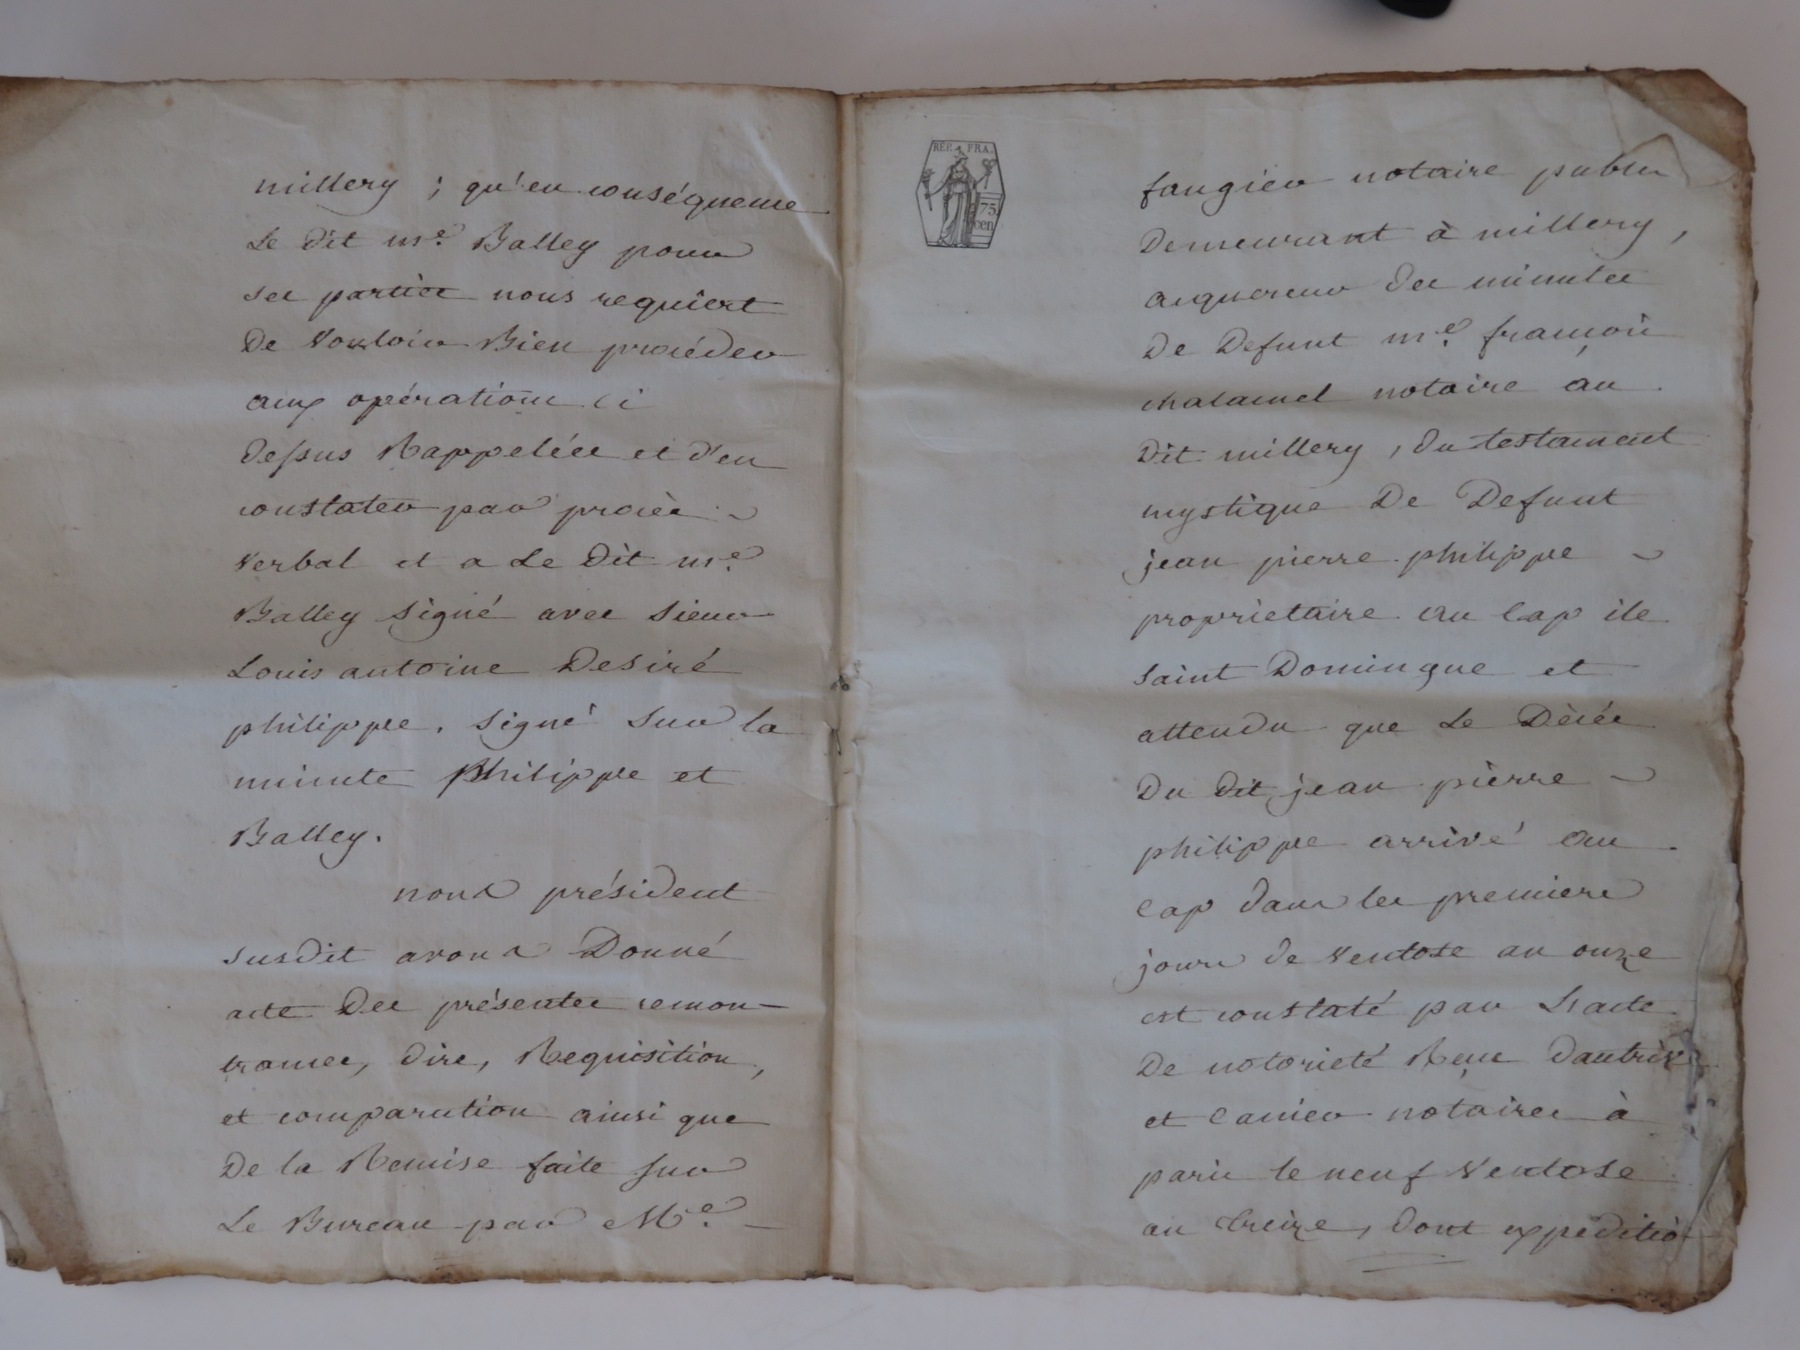 millery ; qu'en conséquence
Le Dit me. Balley pour
ses parties nous requiert
De Vouloir Bien procéder
aux opérations ci
dessus Rappelées et d'en
constater par procès
Verbal et a Le Dit me.
Balley signé avec sieur
Louis antoine Desiré
philippe. signé sur la
minute philippe et
Balley.
nous président
susdit avons Donné
acte Des présentes remon-
trances, dire, Requisition,
et comparution ainsi que
De la Remise faite sur
Le Bureau par Me.
REP. FRA.
75
cen.
fougier notaire public
Demeurant à millery,
acquereur des minutes
De Defunt me. françois
chalamel notaire au
Dit millery, du testament
mystique De Defunt
jean pierre philippe
proprietaire au Cap ile
saint Domingue et
attendu que Le Décés
Du Dit jean pierre
philippe arrivé au
Cap dans les premiers
jours de Ventose an onze
est constaté par L'acte
De notorieté Reçue
et notaires à
paris le neuf Ventose
an treize, dont expeditio